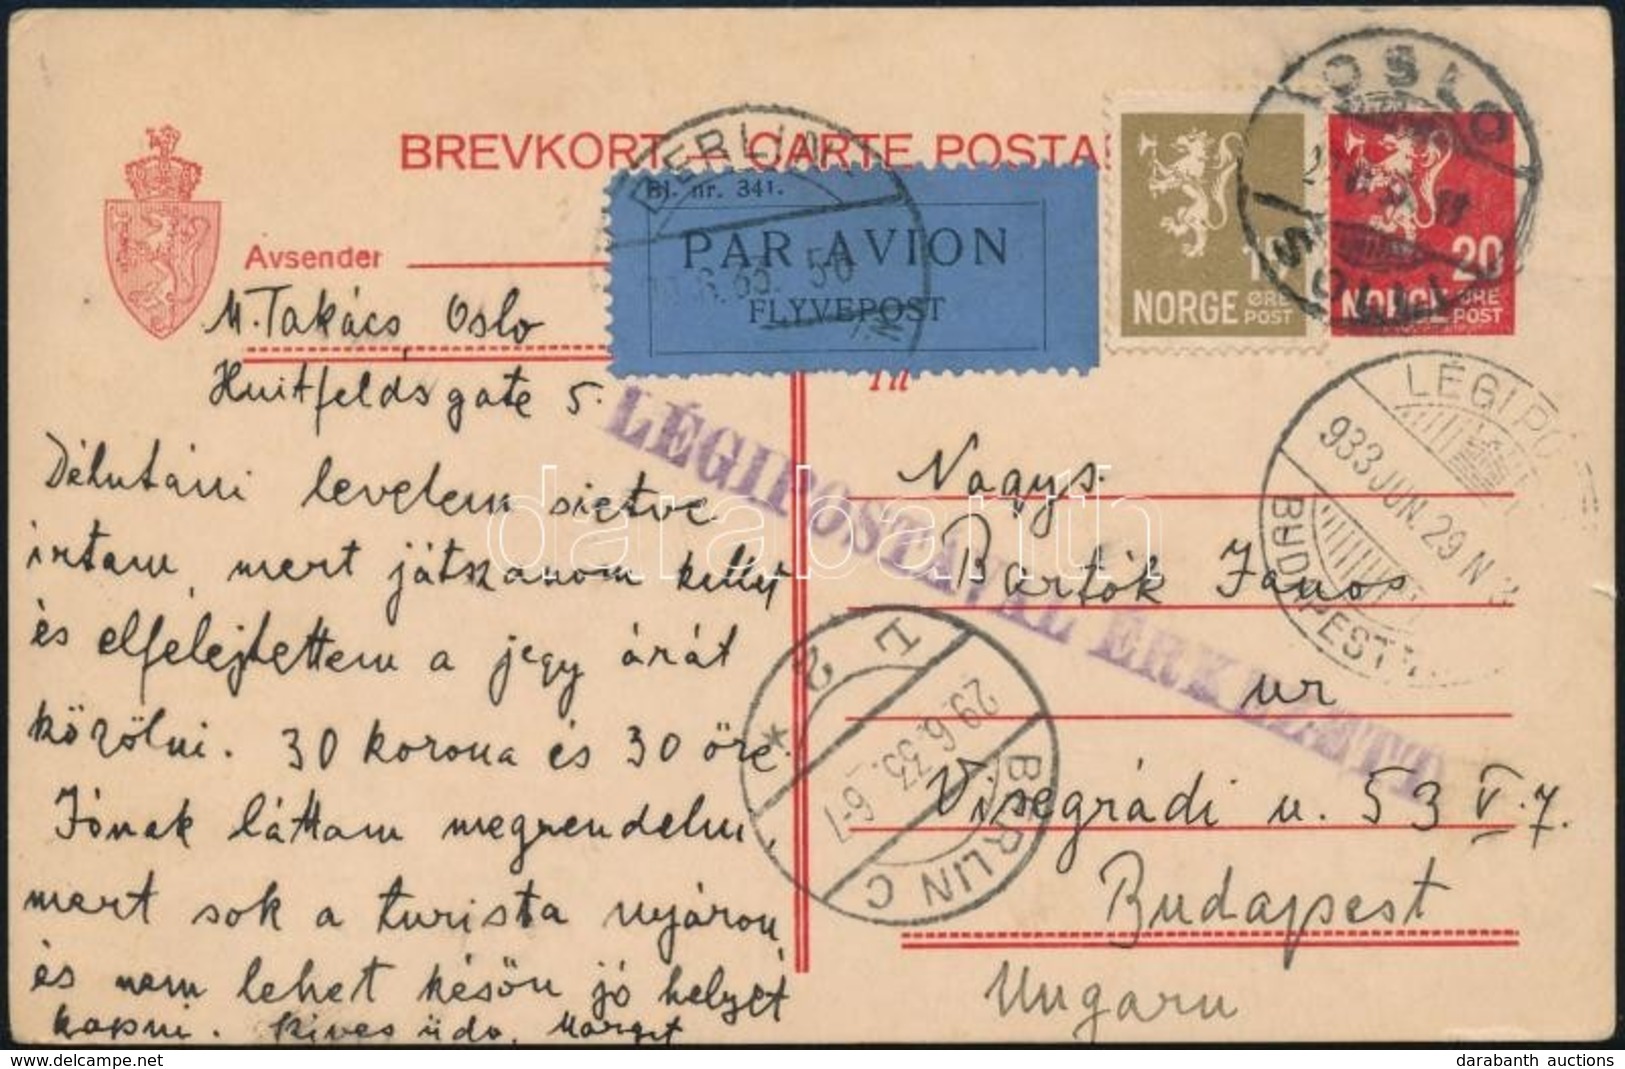 BREVKORT — CARTE POSTA
Bl. nr. 341.
PAR AVION
FLYVEPOST
BERLIN
10
NORGE ØRE POST
20
NORGE ØRE POST
OSLO
Avsender
M. Takács, Oslo
Huitfeldsgate 5.
Til
LÉGIPOSTÁVAL ÉRKEZETT
LÉGIPO
933 JUN. 29 N
BUDAPEST
Délutáni levelem sietve
irtam, mert játszanom kellet
és elfelejtettem a jegy árát
közölni. 30 korona és 30 öre.
Jónak láttam megrendelni,
mert sok a turista nyáron,
és nem lehet késön jó helyet
kapni. Szives üdv. Margit
Nagys.
Bartók János
ur
Visegrádi u. 53 V. 7.
Budapest
Ungarn
BERLIN C
29.6.33. 6-7
* 2
darabanth
darabanth auctions